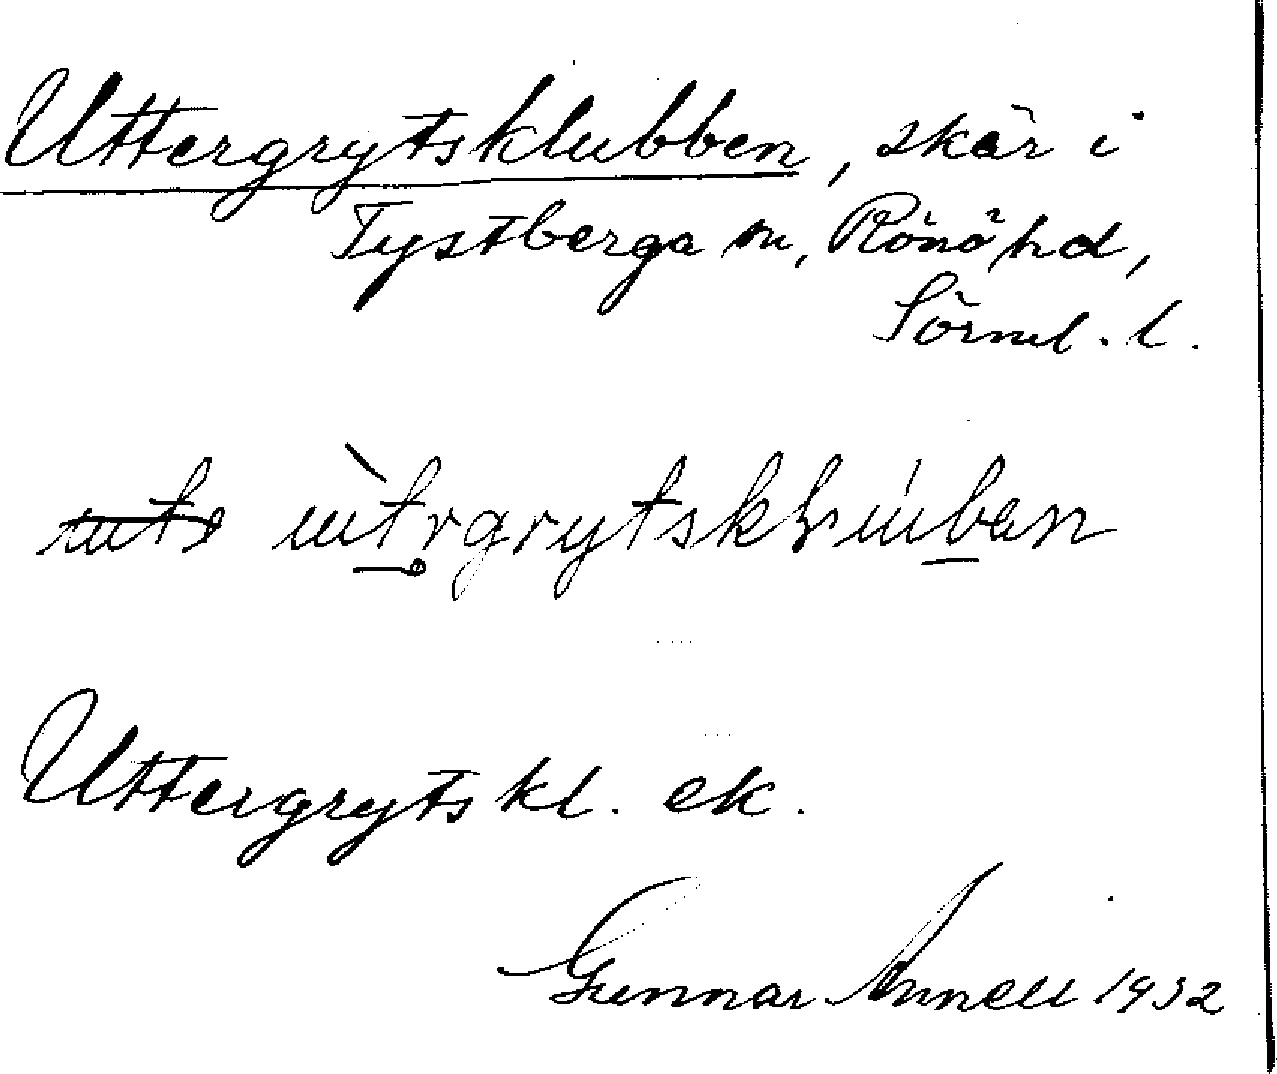 Uttergrytsklubben, skär i
Tystberga sn, Rönö hd,
Sörml. l.
Uttergrytskl. ek.
Gunnar Annell 1932